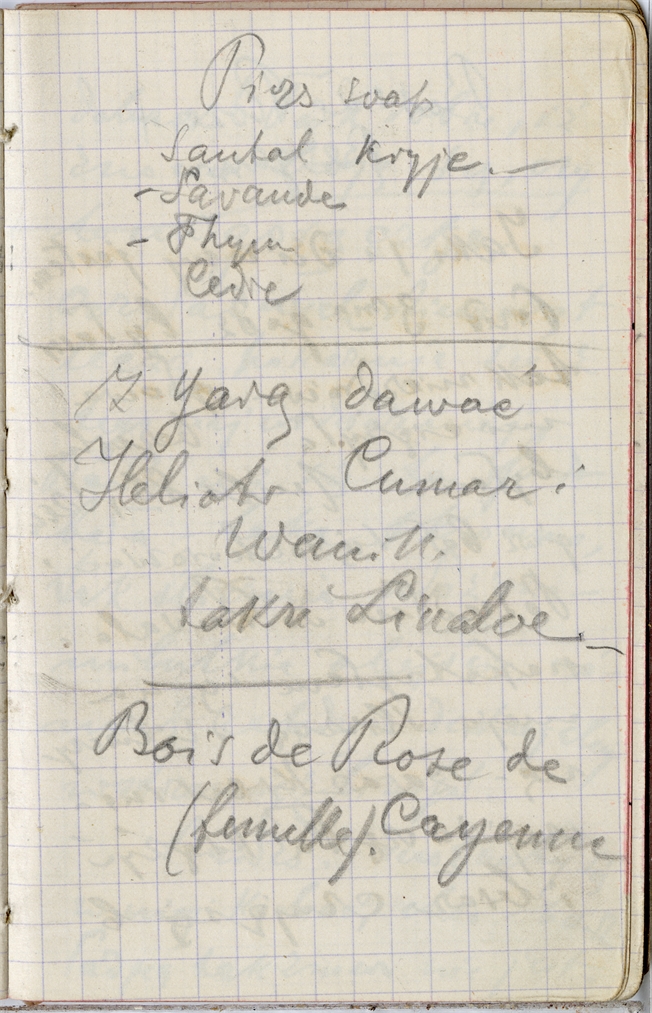 Piers soap
Santal kryje.—
- Lavande
- Thym
Cedre
Z Yarą dawać
Heliotr Cumar i
Wanill.
także Linaloe
Bois de Rose de
(femelle). Cayenne